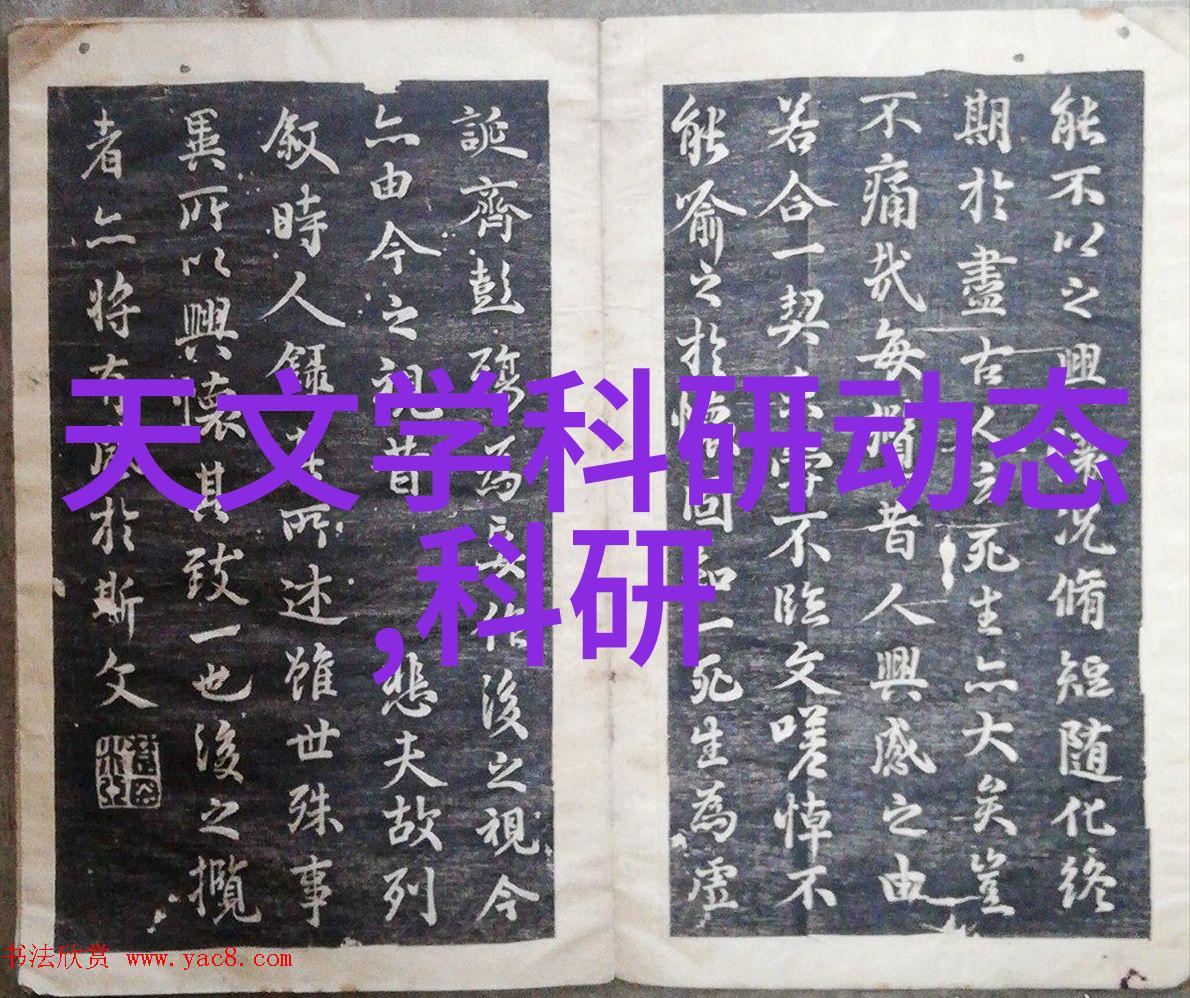 能不以之興懷况脩短随化終
期於盡古人云死生亦大矣豈
不痛哉每攬昔人興感之由
若合一契未嘗不臨文嗟悼不
能喻之於懷固知一死生為虛
誕齊彭殤為妄作後之視今
亦由今之視昔悲夫故列
叙時人録其所述雖世殊事
異所以興懷其致一也後之攬
者亦将有感於斯文
天文学科研动态
,科研
书法欣赏 www.yac8.com